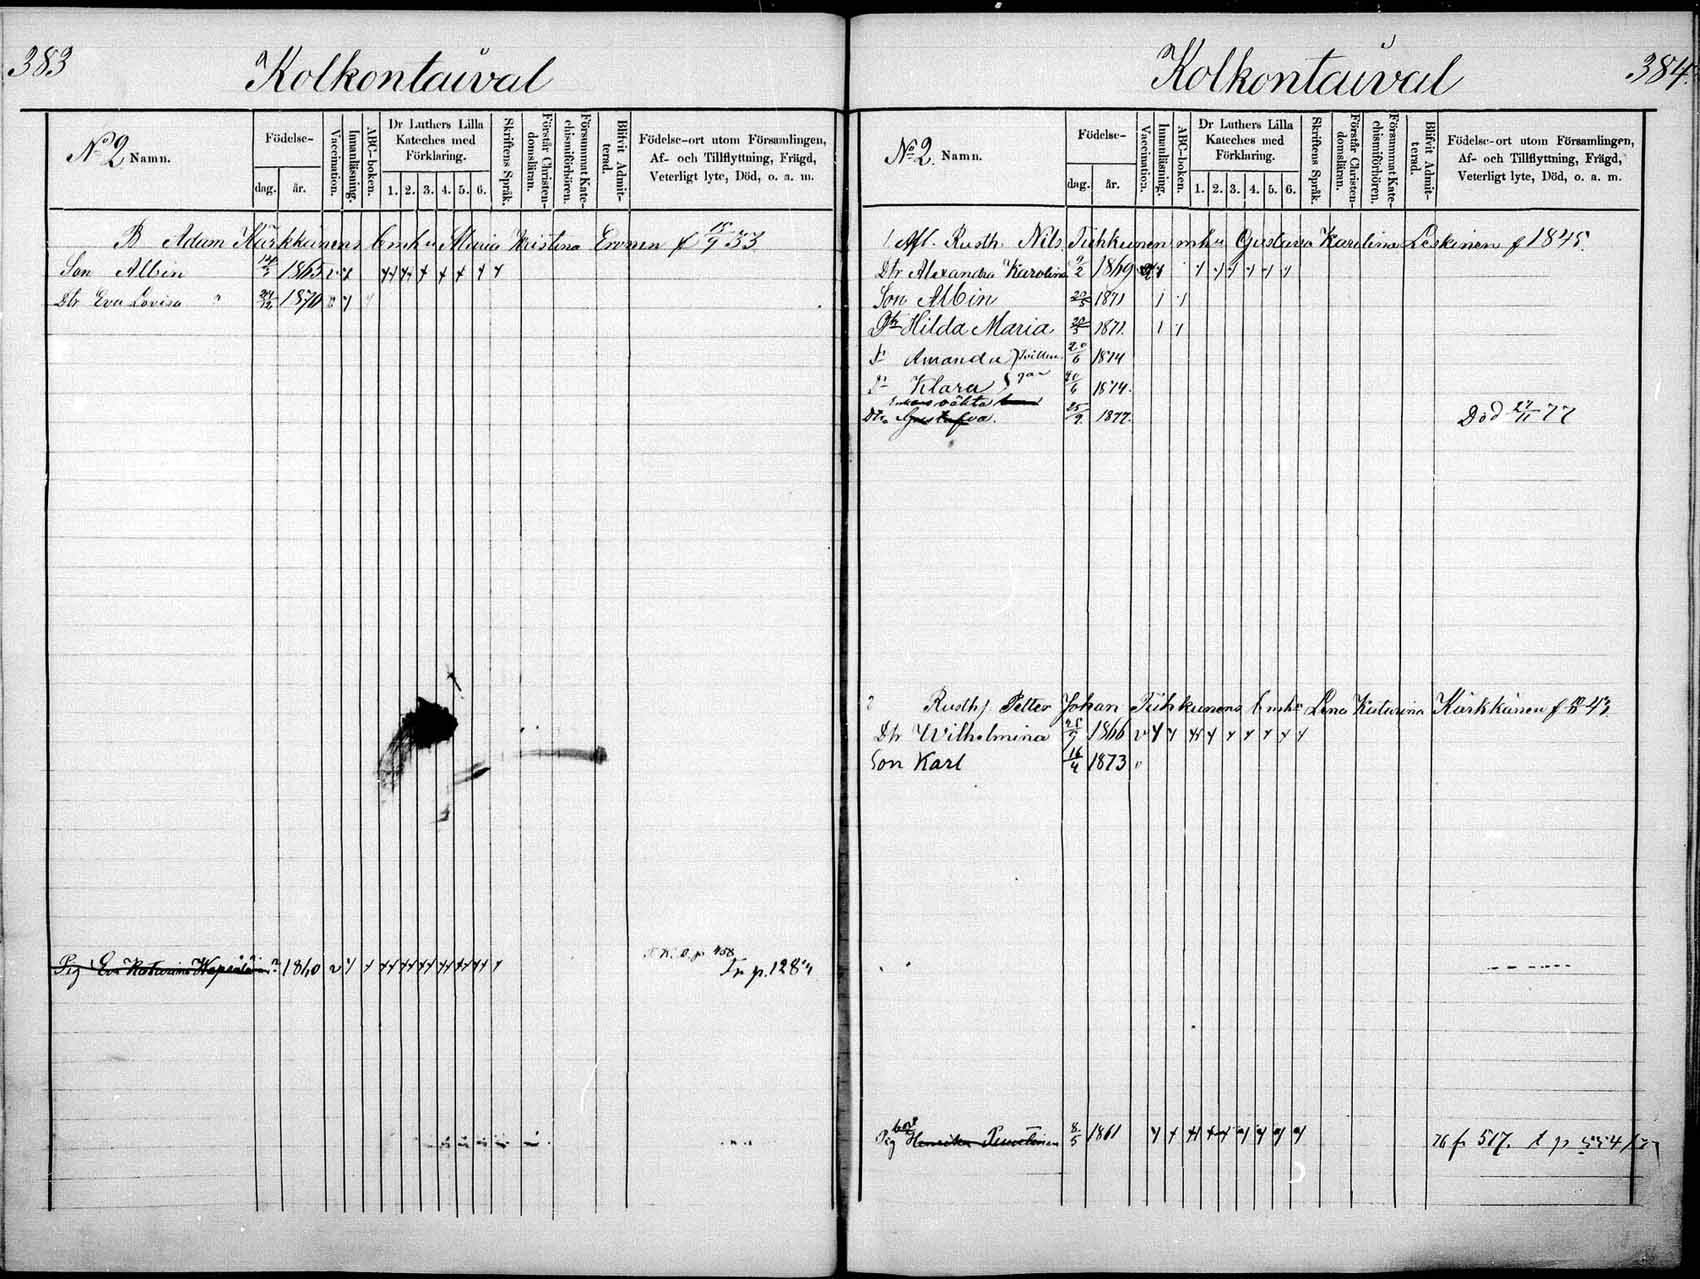 383
Kolkontaival
No 2 Namn.
Födelse-
dag.
år.
Vaccination.
Innanläsning.
ABC-boken.
Dr Luthers Lilla
Kateches med
Förklaring.
1. 2. 3. 4. 5. 6.
Skriftens Språk.
Förstår Christen-
domsläran.
Försummat Kate-
chismiförhören.
Blifvit Admit-
terad.
Födelse-ort utom Församlingen,
Af- och Tillflyttning, Frägd,
Veterligt lyte, Död, o. a. m.
B Adam Kärkkänens Maria Kristina Eronen f 15/9 33
Son Albin 1865
Dtr Eva Lovisa 1870
Pig Eva Katarina 1840 p 458
Fr p. 128
384
Kolkontaival
No 2. Namn.
Födelse-
dag.
år.
Vaccination.
Innanläsning.
ABC-boken.
Dr Luthers Lilla
Kateches med
Förklaring.
1. 2. 3. 4. 5. 6.
Skriftens Språk.
Förstår Christen-
domsläran.
Försummat Kate-
chismiförhören.
Blifvit Admit-
terad.
Födelse-ort utom Församlingen,
Af- och Tillflyttning, Frägd,
Veterligt lyte, Död, o. a. m.
Afl. Rusth. Nils Tuhkunen Gustava Karolina Leskinen f 1845.
Dtr Alexandra Karolina 9/2 1869
Son Albin 20/5 1871
Dtr Hilda Maria 20/5 1871.
Amanda 20/6 1874
Klara 20/6 1874.
Dtr Gustafva. 25/9 1877. Död 27/11 77
Rusth. Petter Johan Tuhkunens Lena Kristina Kärkkänen f 43
Dtr Wilhelmina 1866
Son Karl 16/4 1873
Pig Henrika 8/5 1861 76 fr 517. t p 554